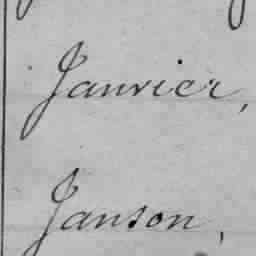 Janvier,
Janson,